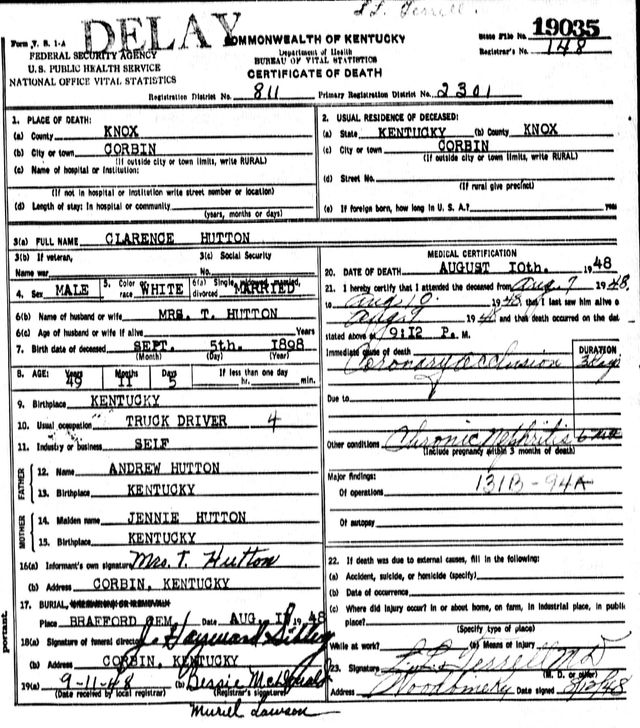 DELAY
COMMONWEALTH OF KENTUCKY
State File No. 19035
Form V. S. 1-A
FEDERAL SECURITY AGENCY
U. S. PUBLIC HEALTH SERVICE
NATIONAL OFFICE VITAL STATISTICS
Department of Health
BUREAU OF VITAL STATISTICS
CERTIFICATE OF DEATH
Registrar's No. 148
Registration District No. 811 Primary Registration District No. 2301
1. PLACE OF DEATH:
(a) County KNOX
(b) City or town CORBIN
(If outside city or town limits, write RURAL)
(c) Name of hospital or institution:
(If not in hospital or institution write street number or location)
(d) Length of stay: In hospital or community
(years, months or days)
2. USUAL RESIDENCE OF DECEASED:
(a) State KENTUCKY (b) County KNOX
(c) City or town CORBIN
(If outside city or town limits, write RURAL)
(d) Street No.
(If rural give precinct)
(e) If foreign born, how long in U. S. A.?
3(a) FULL NAME CLARENCE HUTTON
3(b) If veteran,
Name war
3(c) Social Security
No.
4. Sex MALE 5. Color or race WHITE 6(a) Single, married, divorced MARRIED
6(b) Name of husband or wife MRS. T. HUTTON
6(c) Age of husband or wife if alive Years
7. Birth date of deceased SEPT. 5th. 1898
(Month) (Day) (Year)
8. AGE: Years Months Days If less than one day
49 11 5 hr. min.
9. Birthplace KENTUCKY
10. Usual occupation TRUCK DRIVER 4
11. Industry or business SELF
FATHER
12. Name ANDREW HUTTON
13. Birthplace KENTUCKY
MOTHER
14. Maiden name JENNIE HUTTON
15. Birthplace KENTUCKY
16(a) Informant's own signature Mrs. T. Hutton
(b) Address CORBIN, KENTUCKY
17. BURIAL,
Place BRAFFORD CEM. Date AUG. 1948
18(a) Signature of funeral director J. Hayward
(b) Address CORBIN, KENTUCKY
19(a) 9-11-48 (b) Bessie McDonald
(Date received by local registrar) (Registrar's signature)
Muriel Lawson
MEDICAL CERTIFICATION
20. DATE OF DEATH AUGUST 10th. 1948
21. I hereby certify that I attended the deceased from Aug 7 1948
to Aug 10 1948, that I last saw him alive o
Aug 9 1948 and that death occurred on the dat
stated above at 9:12 P. M.
Immediate cause of death DURATION
Coronary Occlusion 3 days
Due to
Other conditions Chronic Nephritis
(Include pregnancy within 3 months of death)
Major findings:
Of operations 131B-94A
Of autopsy
22. If death was due to external causes, fill in the following:
(a) Accident, suicide, or homicide (specify)
(b) Date of occurrence
(c) Where did injury occur? In or about home, on farm, in industrial place, in public
place?
(Specify type of place)
While at work? (e) Means of injury
23. Signature Terrell MD
(M. D. or other)
Address Date signed 8/12/48
portant.